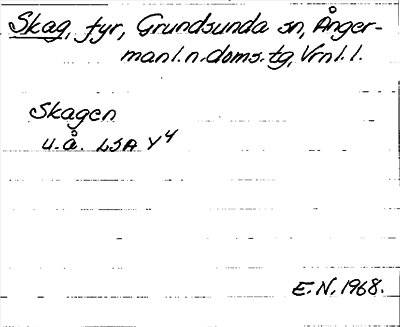 Skag, fyr, Grundsunda sn, Ånger-
manl. n. doms. tg, Vrnl. l.
Skagen
u. å. LSA Y4
E. N. 1968.